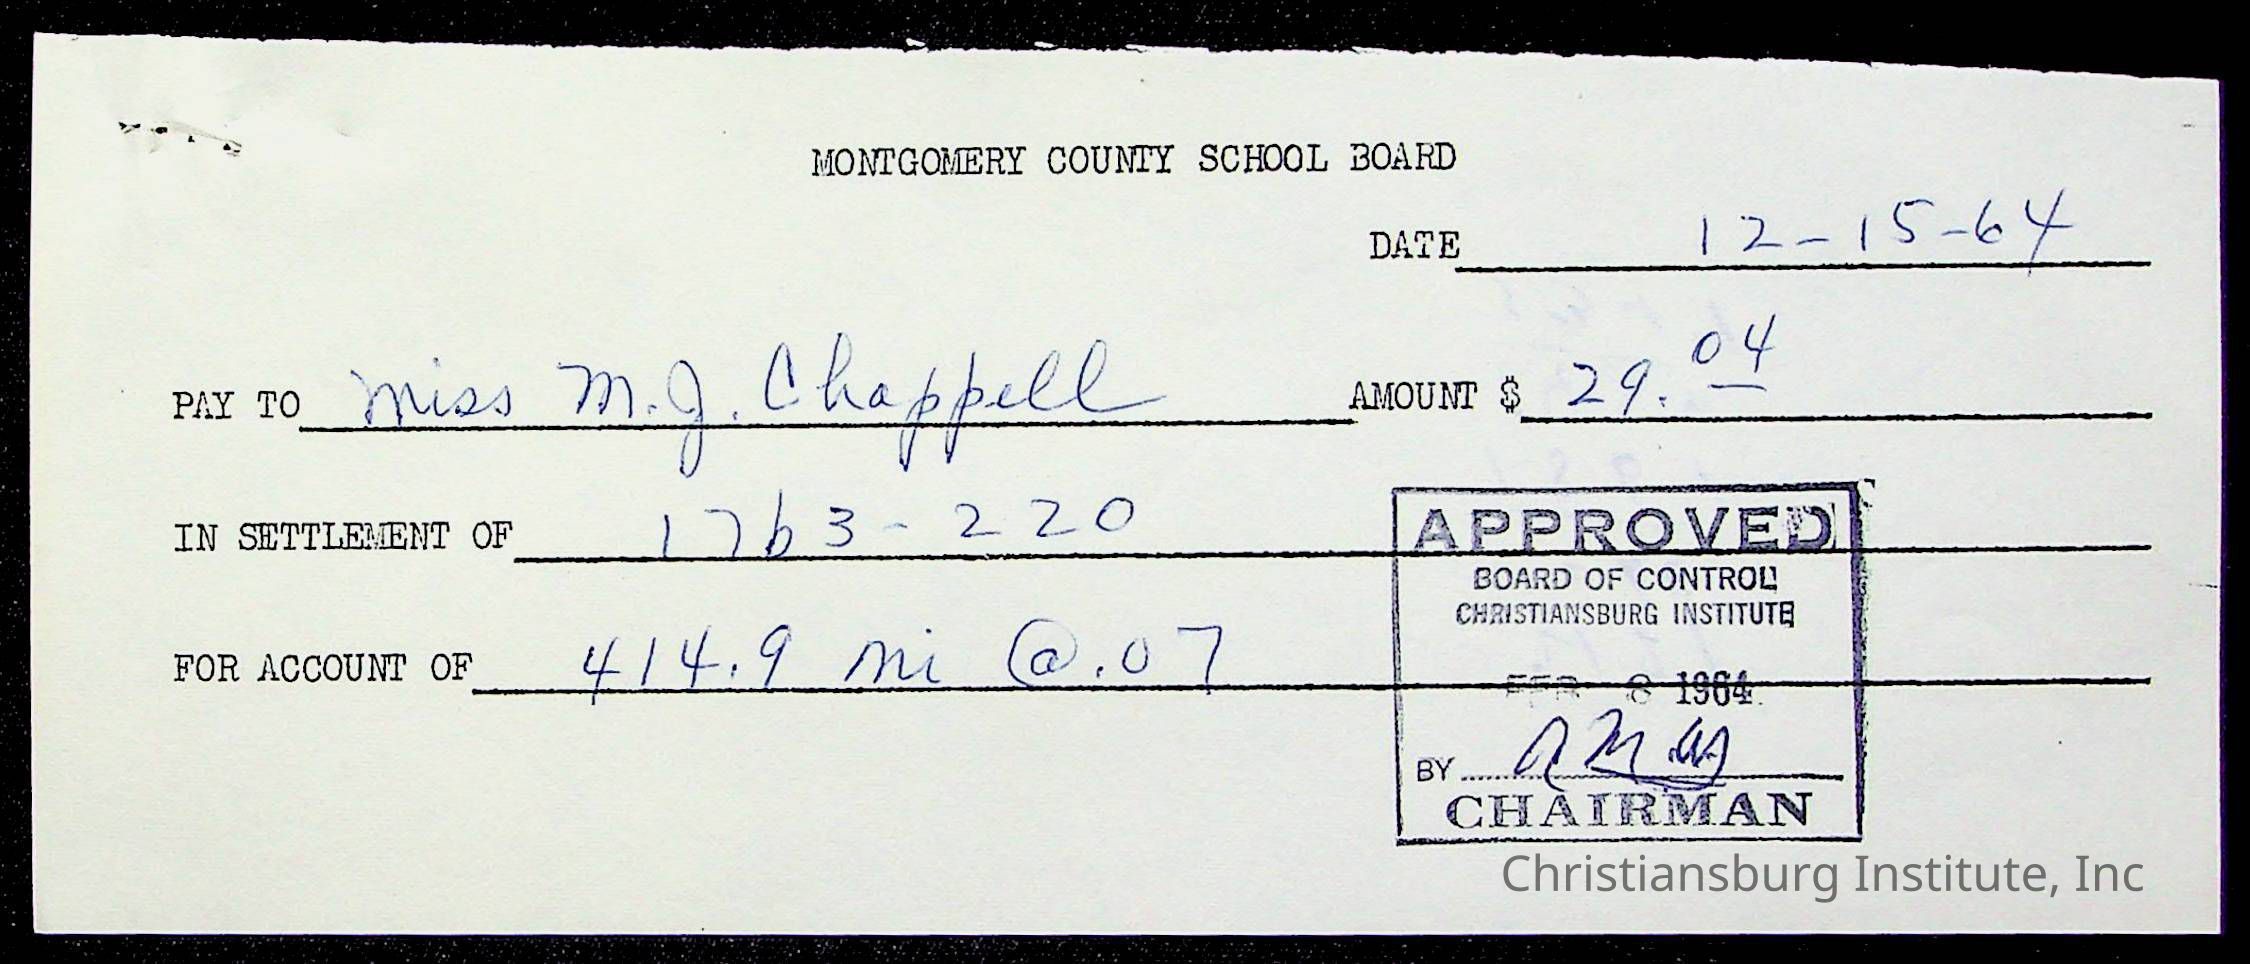 MONTGOMERY COUNTY SCHOOL BOARD
DATE 12-15-64
PAY TO Miss M.J. Chappell AMOUNT $ 29.04
IN SETTLEMENT OF 17b3-220
FOR ACCOUNT OF 414.9 mi @.07
APPROVED
BOARD OF CONTROL
CHRISTIANSBURG INSTITUTE
FEB 8 1964
BY
CHAIRMAN
Christiansburg Institute, Inc